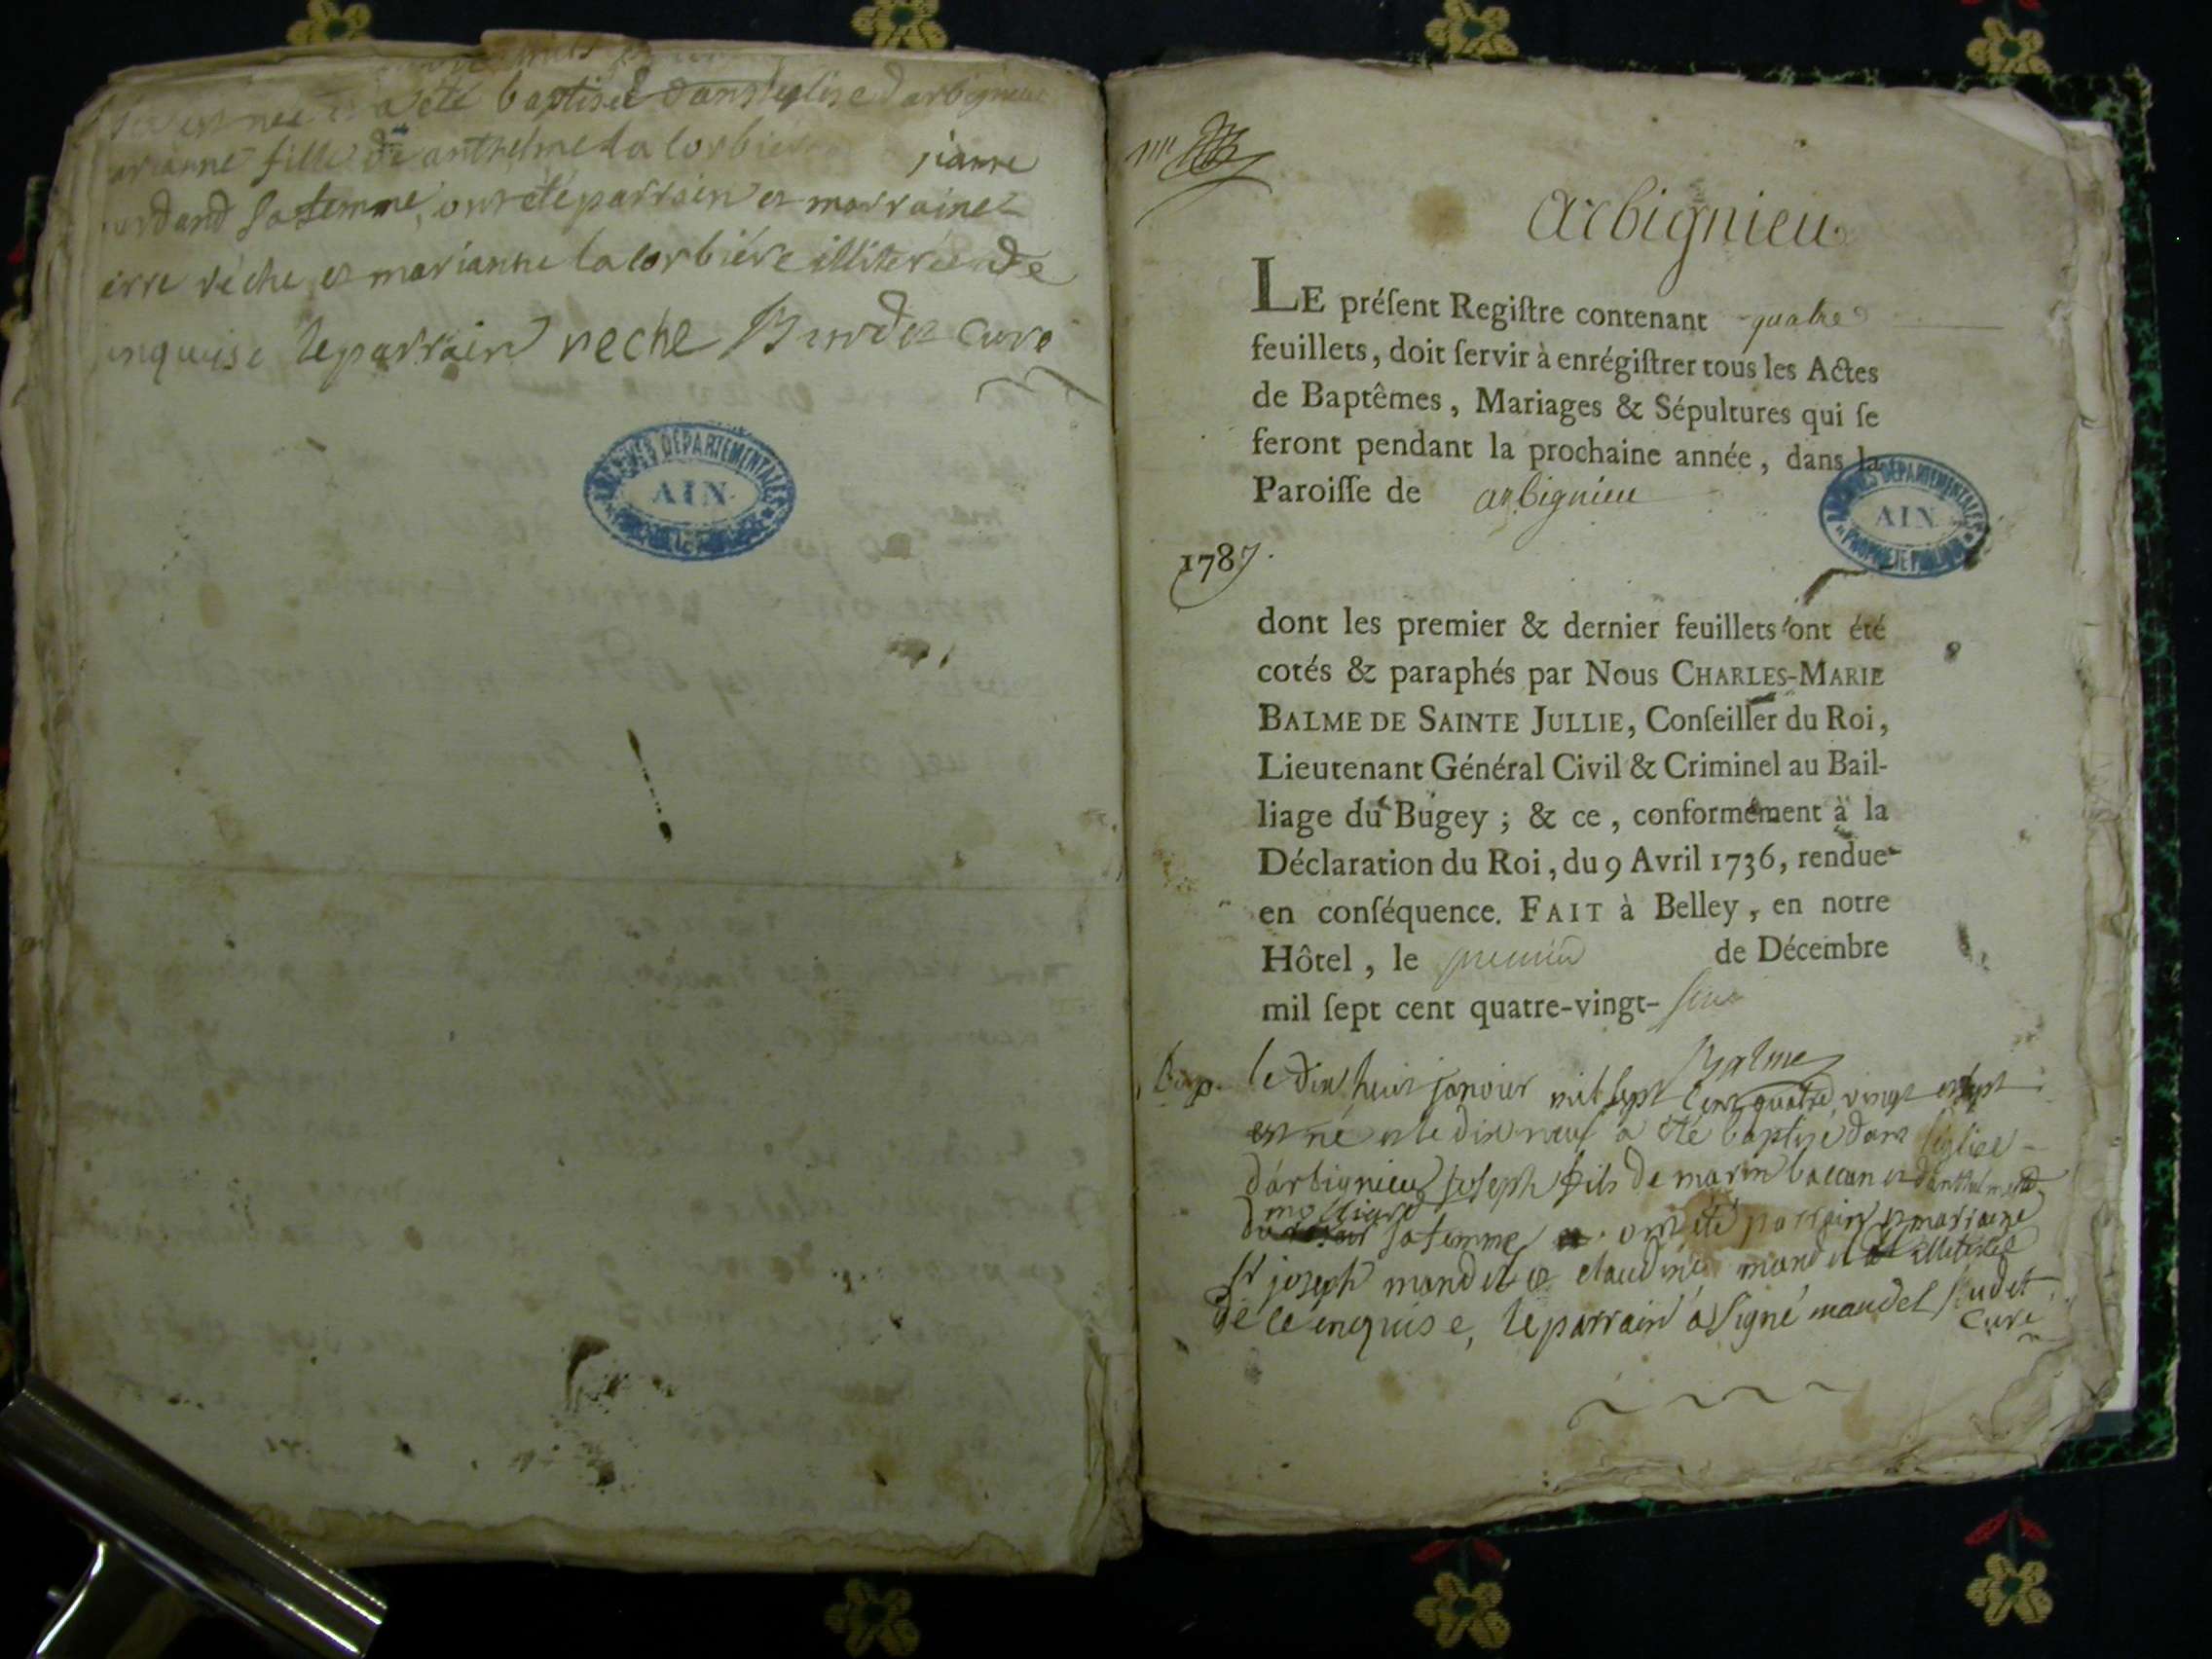 a été baptisée dans leglise darbignieu
arianne fille de anthelme la Corbiere jianne
sa femme, ont été parrain et marraine
erre réche et marianne la corbiére illiterée de
enquise le parrain reche Curé
ARCHIVES DÉPARTEMENTALES
AIN
arbignieu
LE préſent Regiſtre contenant quatre
feuillets, doit ſervir à enrégiſtrer tous les Actes
de Baptêmes, Mariages & Sépultures qui ſe
feront pendant la prochaine année, dans la
Paroiſſe de arbignieu
ARCHIVES DÉPARTEMENTALES
AIN
PROPRIÉTÉ PUBLIQUE
1787.
dont les premier & dernier feuillets ont été
cotés & paraphés par Nous CHARLES-MARIE
BALME DE SAINTE JULLIE, Conſeiller du Roi,
Lieutenant Général Civil & Criminel au Bail-
liage du Bugey ; & ce, conformément à la
Déclaration du Roi, du 9 Avril 1736, rendue
en conſéquence. FAIT à Belley, en notre
Hôtel, le premier de Décembre
mil ſept cent quatre-vingt- six
Balme
Bap. le dix huit janvier mil sept cent quatre vingt et sept
est né et le dix neuf a été baptisé dans léglise
d'arbignieu joseph fils de marin et d'anthelmette
sa femme ont été parrain et marraine
sr joseph mandet et claudine mandet illiterée
de ce enquise, le parrain a signé mandet
Curé